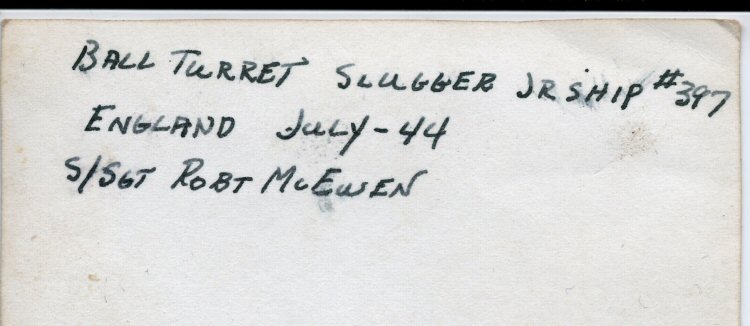 BALL TURRET SLUGGER JR SHIP #397
ENGLAND JULY-44
S/SGT ROBT McEWEN